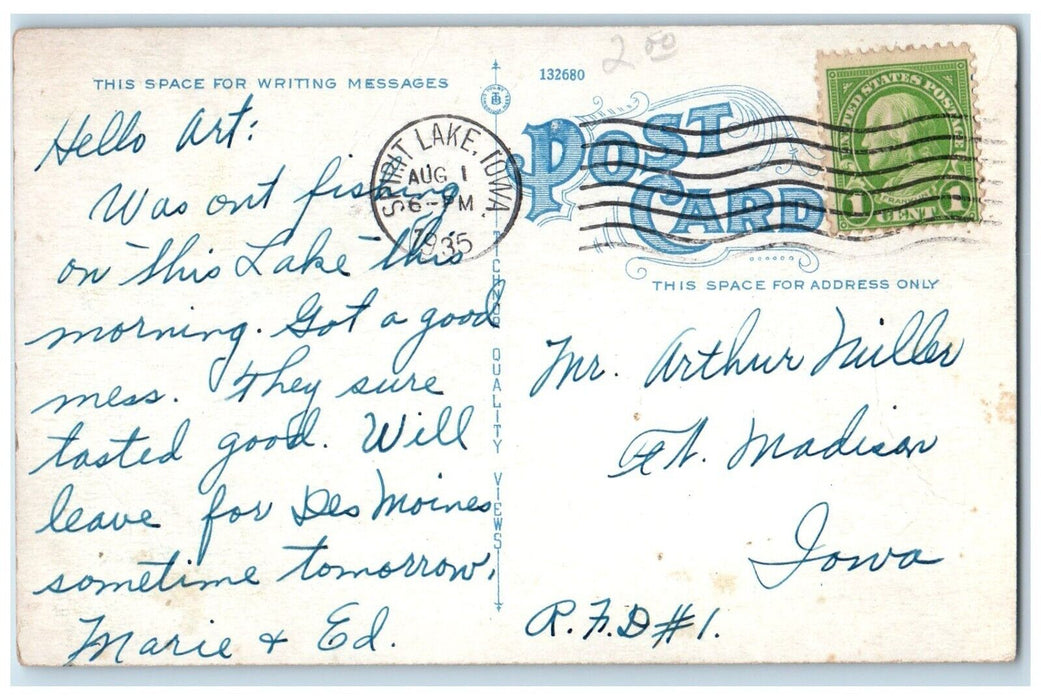 THIS SPACE FOR WRITING MESSAGES
Hello Art:
Was out fishing
on this Lake this
morning. Got a good
mess. They sure
tasted good. Will
leave for Des Moines
sometime tomorrow.
Marie & Ed.
SPIRIT LAKE, IOWA
AUG 1
6-PM
1935
TICHNOR QUALITY VIEWS
132680
2 00
POST
CARD
UNITED STATES POSTAGE
FRANKLIN
1 CENT 1
THIS SPACE FOR ADDRESS ONLY
Mr. Arthur Miller
Ft. Madison
Iowa
R.F.D #1.